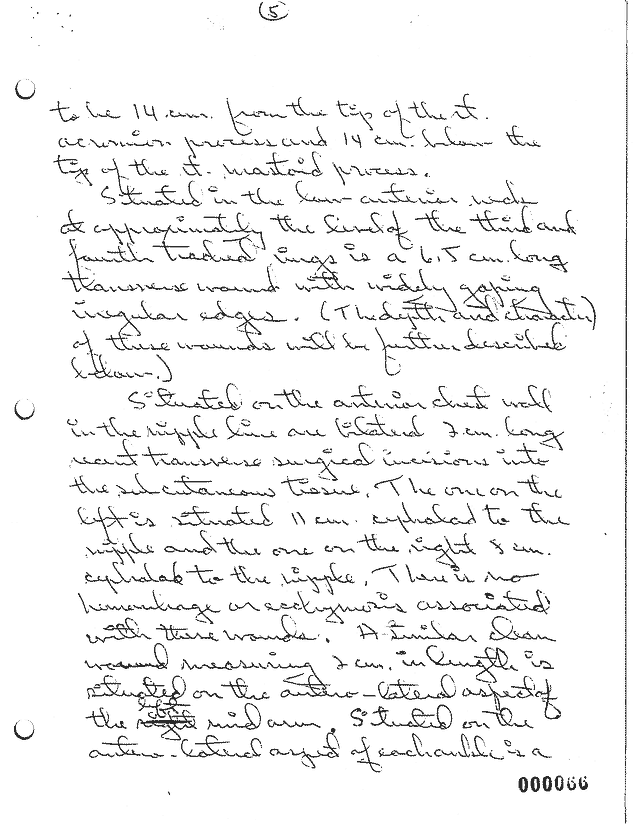 (5)
to be 14 cm. from the tip of the rt.
acromion process and 14 cm. below the
tip of the rt. mastoid process.
Situated in the low anterior neck
at approximately the level of the third and
fourth tracheal rings is a 6.5 cm. long
transverse wound with widely gaping
irregular edges. (The depth and character)
of these wounds will be further described
below.)
Situated on the anterior chest wall
in the nipple line are bilateral 2 cm. long
recent transverse surgical incisions into
the subcutaneous tissue. The one on the
left is situated 11 cm. cephalad to the
nipple and the one on the right 8 cm.
cephalad to the nipple. There is no
hemorrhage or ecchymosis associated
with these wounds. A similar clean
wound measuring 2 cm. in length is
situated on the antero-lateral aspect of
the left mid arm. Situated on the
antero-lateral aspect of each ankle is a
000066